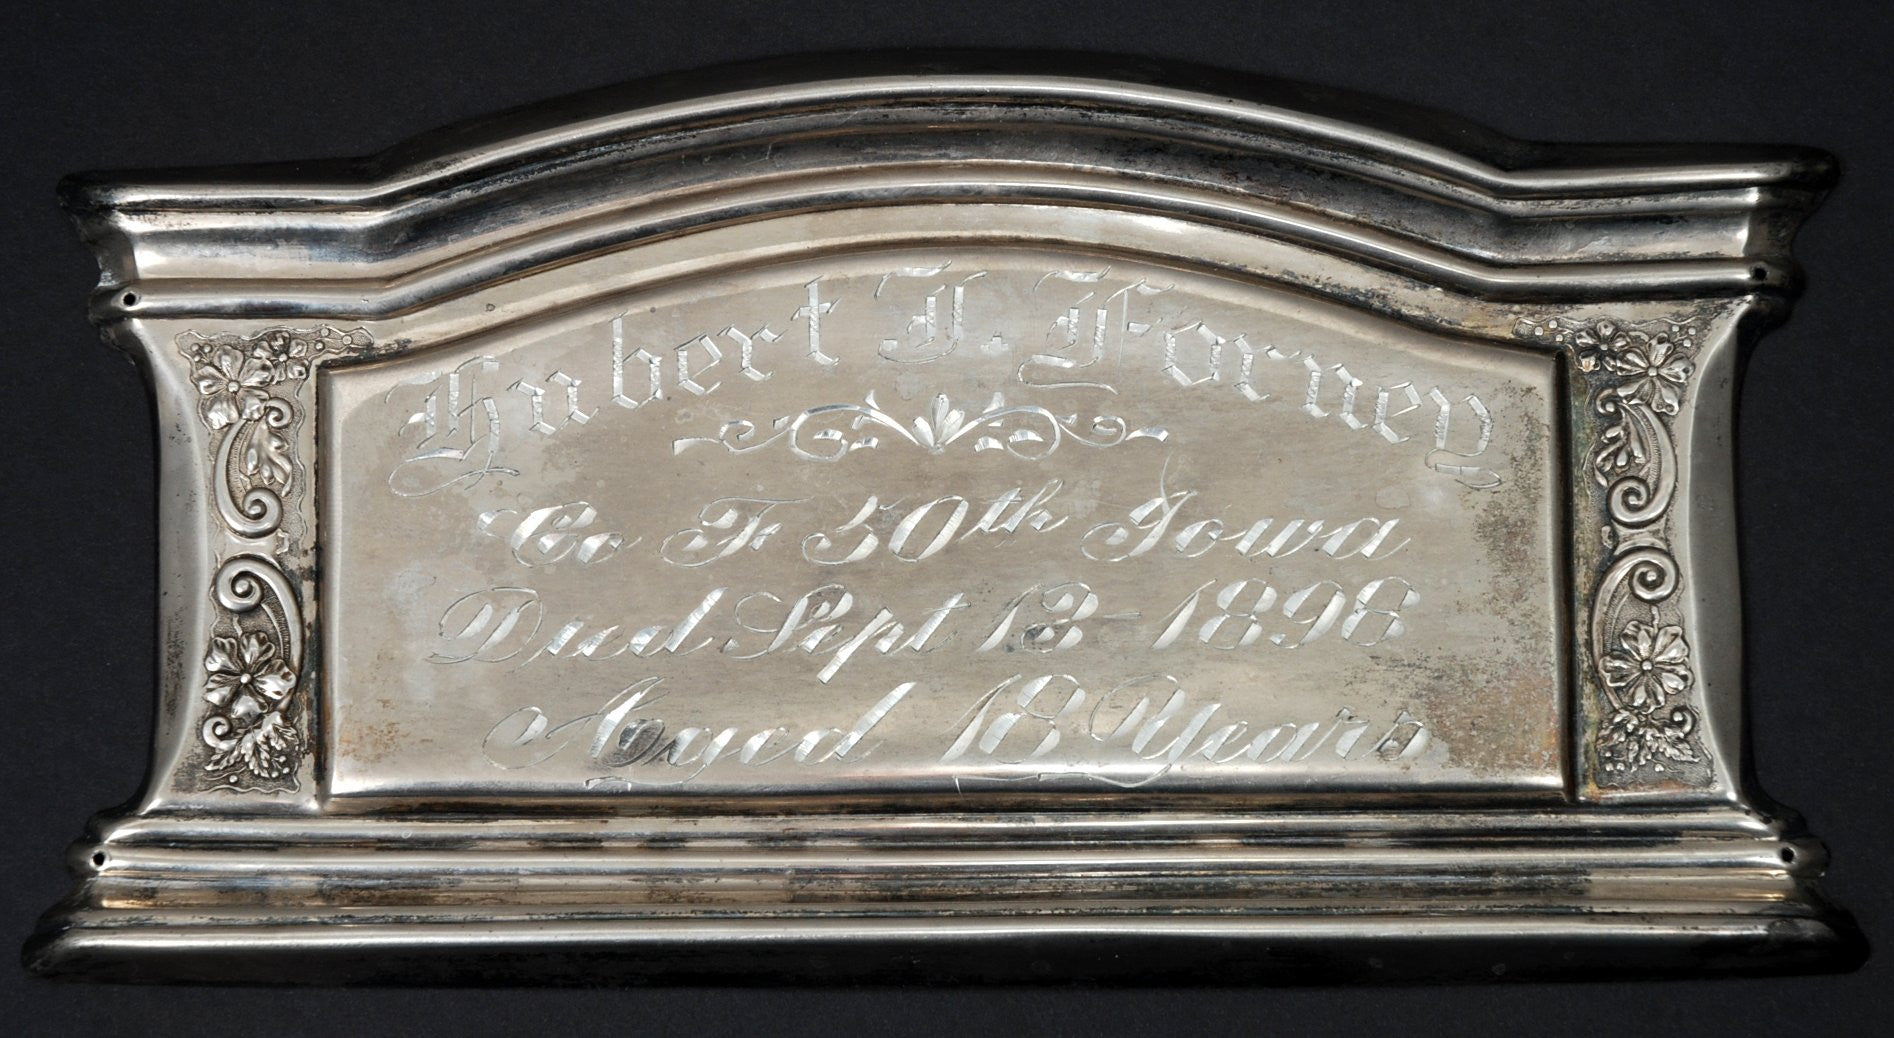 Hubert I. Forney
Co F 50th Iowa
Died Sept 12-1898
Aged 18 Years.